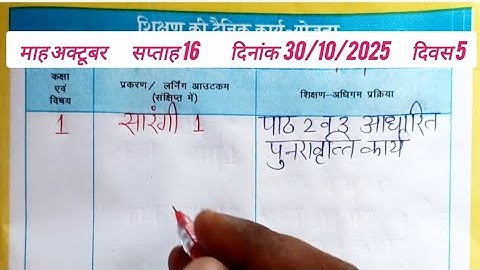 शिक्षण की दैनिक कार्य-योजना
माह अक्टूबर सप्ताह 16 दिनांक 30/10/2025 दिवस 5
कक्षा एवं विषय
प्रकरण/ लर्निंग आउटकम (संक्षिप्त में)
शिक्षण-अधिगम प्रक्रिया
1 सारंगी 1 पाठ 2 व 3 आधारित
पुनरावृत्ति कार्य